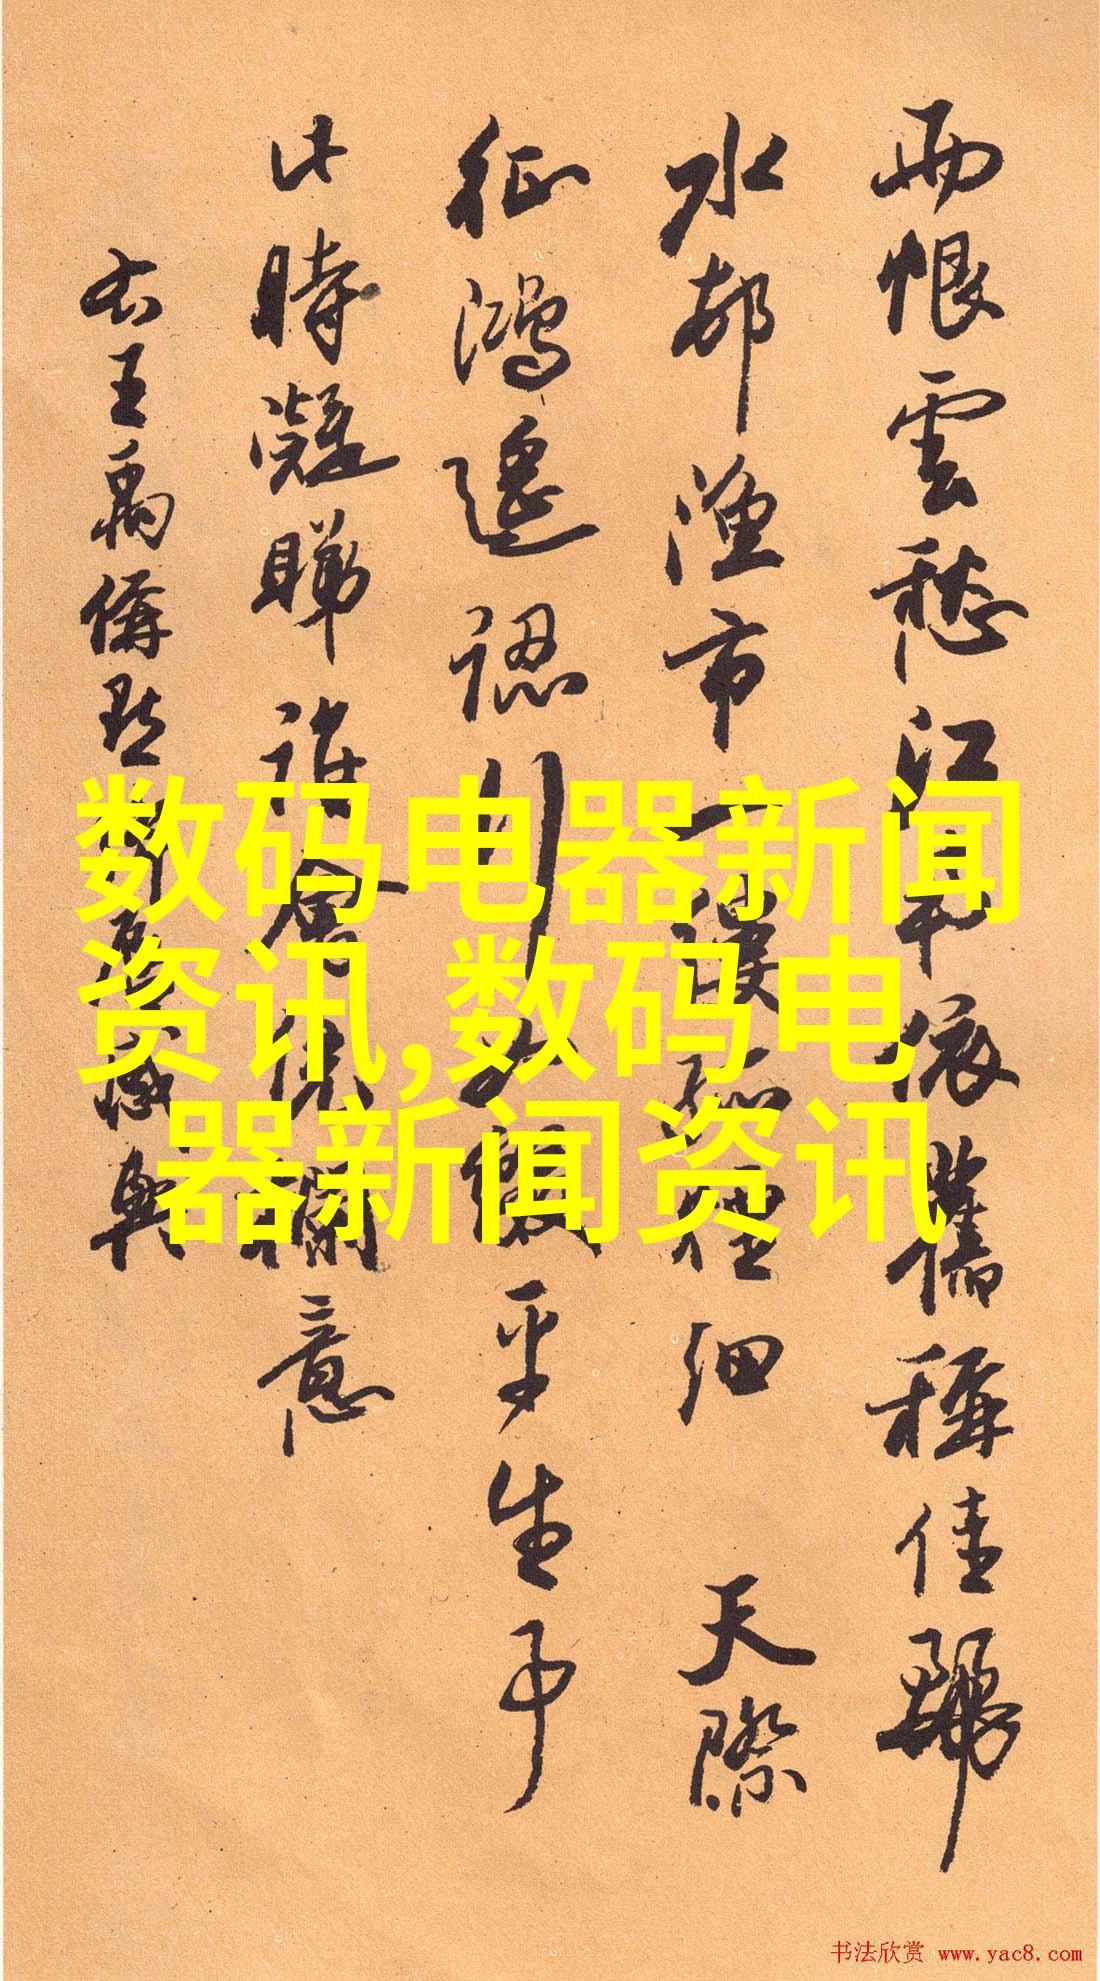 雨恨雲愁江南依舊稱佳麗
水邨漁市一縷孤煙細 天際
征鴻遙認行如綴平生事
此時凝睇誰會憑欄意
右王禹偁點絳脣感興
数码电器新闻
资讯,数码电
器新闻资讯
书法欣赏 www.yac8.com